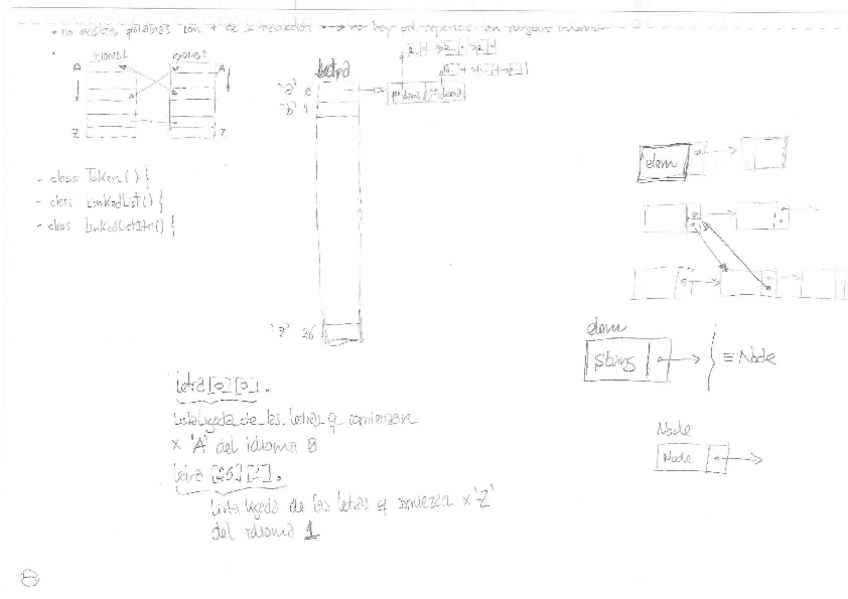 • no existen palabras con + de 1 traducción → no hay pal repetidas en ningún idioma.
IDIOMA1 IDIOMA2
A A
Z Z
letra
'a' 0
'b' 1
1º idioma 2º idioma
- class Token() {
- class LinkedList() {
- class LinkedListItr() {
elem
'z' 26
elem
string } ≡ Node
letra[0][0].
Lista ligada de las letras q comienzan
x 'A' del idioma 0
letra [25][1].
Lista ligada de las letras q comienzan x 'Z'
del idioma 1
Node
Node